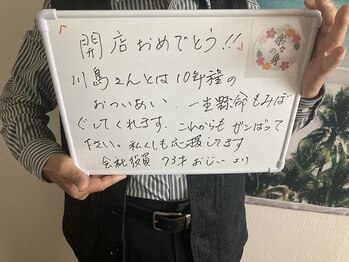 「開店おめでとう!!」
川島さんとは10年程の
おつきあい、一生懸命もみほ
ぐしてくれます。これからもガンばって
下さい。私くしも応援してます
会社役員 73才 おじい より
楽々の身